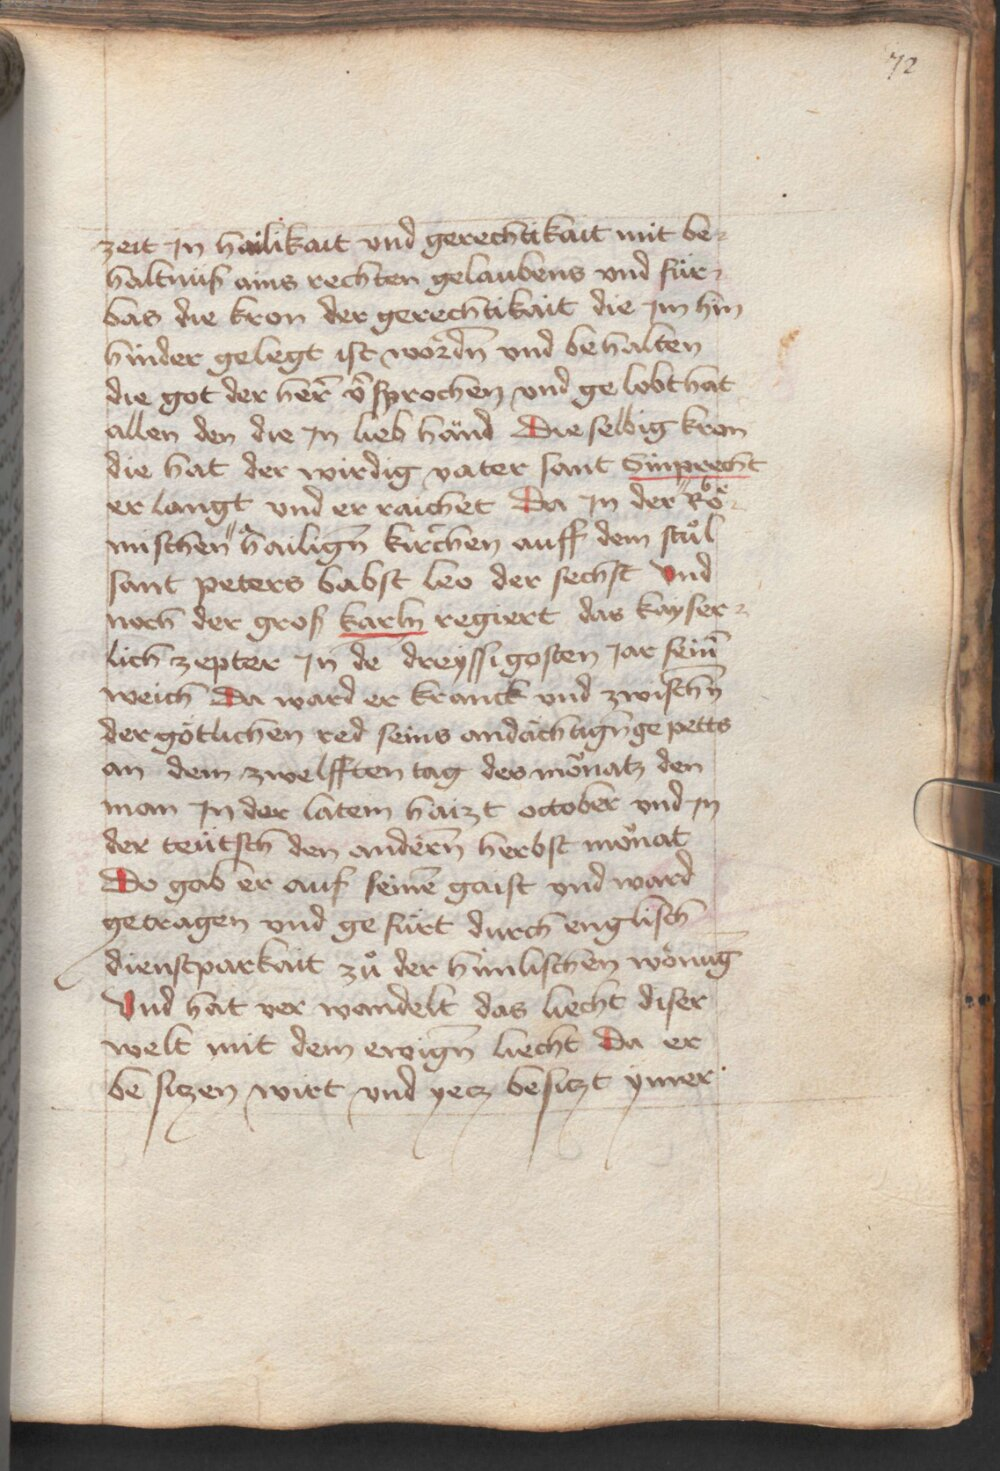 72
zeit Jn hailikait vnd gerechtikait mit be⸗
haltnuß ains rechten gelaubens vnd für⸗
bas die kron der gerechtikait die Jm hin
hinder gelegt ist wordn̄ vnd behalten
die got der her̄ v̄sprochen vnd gelobt hat
allen den die Jn lieb händ Die selbig kron
die hat der wirdig vater sant Simprecht
er langt vnd er raichet Da Jn der Rö⸗
mischen hailign̄ kirchen auff dem stůl
sant peters babst leo der sechst Vnd
noch der groß karln regiert das kayser⸗
lich zepter Jn de dreyssigosten Jar sein̄
weich Da ward er kranck vnd zwischn̄
der götlichen red seins andächtign̄ ge petts
an dem zwelfften tag des mönatz den
man Jn der latem haizt october vnd Jn
der teütsch den andern̄ herbst mönat
Do gab er auf seinē gaist vnd ward
getragen vnd ge fürt durch englisch
dienstparkait zů der himlischen wönūg
Vnd hat ver wandelt das liecht diser
welt mit dem ewign̄ liecht Da er
be sitzen wirt vnd yecz besiczt ymer